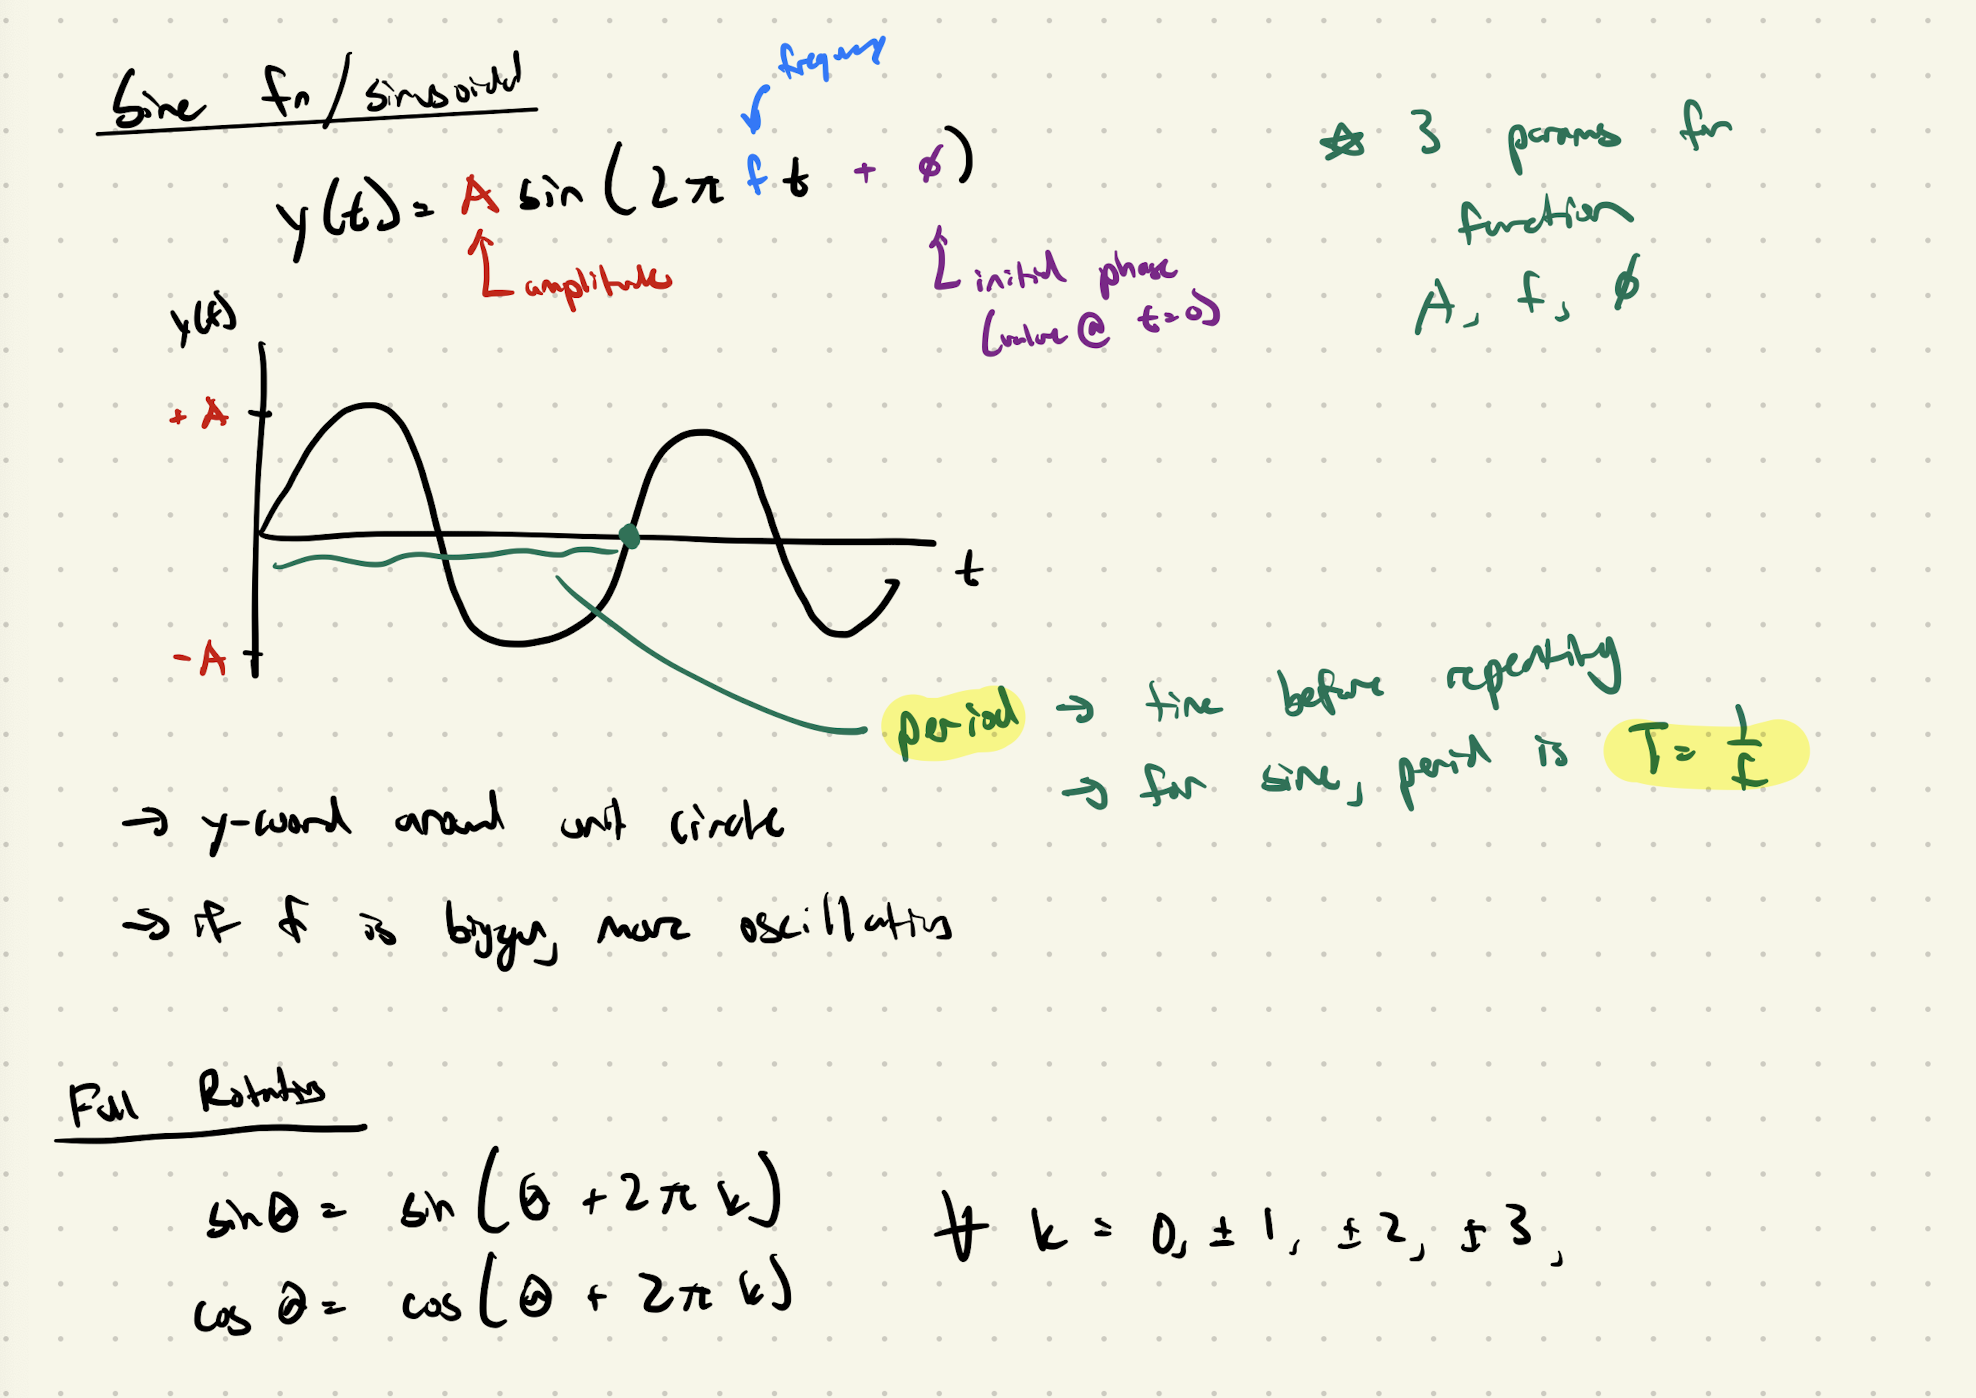 Sine fn/sinusoidal
frequency
y(t) = A sin(2π f t + ϕ)
amplitude
initial phase
(value @ t=0)
☆ 3 params for
function
A, f, ϕ
y(t)
+ A
- A
t
period → time before repeating
→ for sine, period is T = 1/f
→ y-coord around unit circle
→ if f is bigger, more oscillations
Full Rotations
sinθ = sin(θ + 2π k)
∀ k = 0, ±1, ±2, ±3,
cos θ = cos(θ + 2π k)